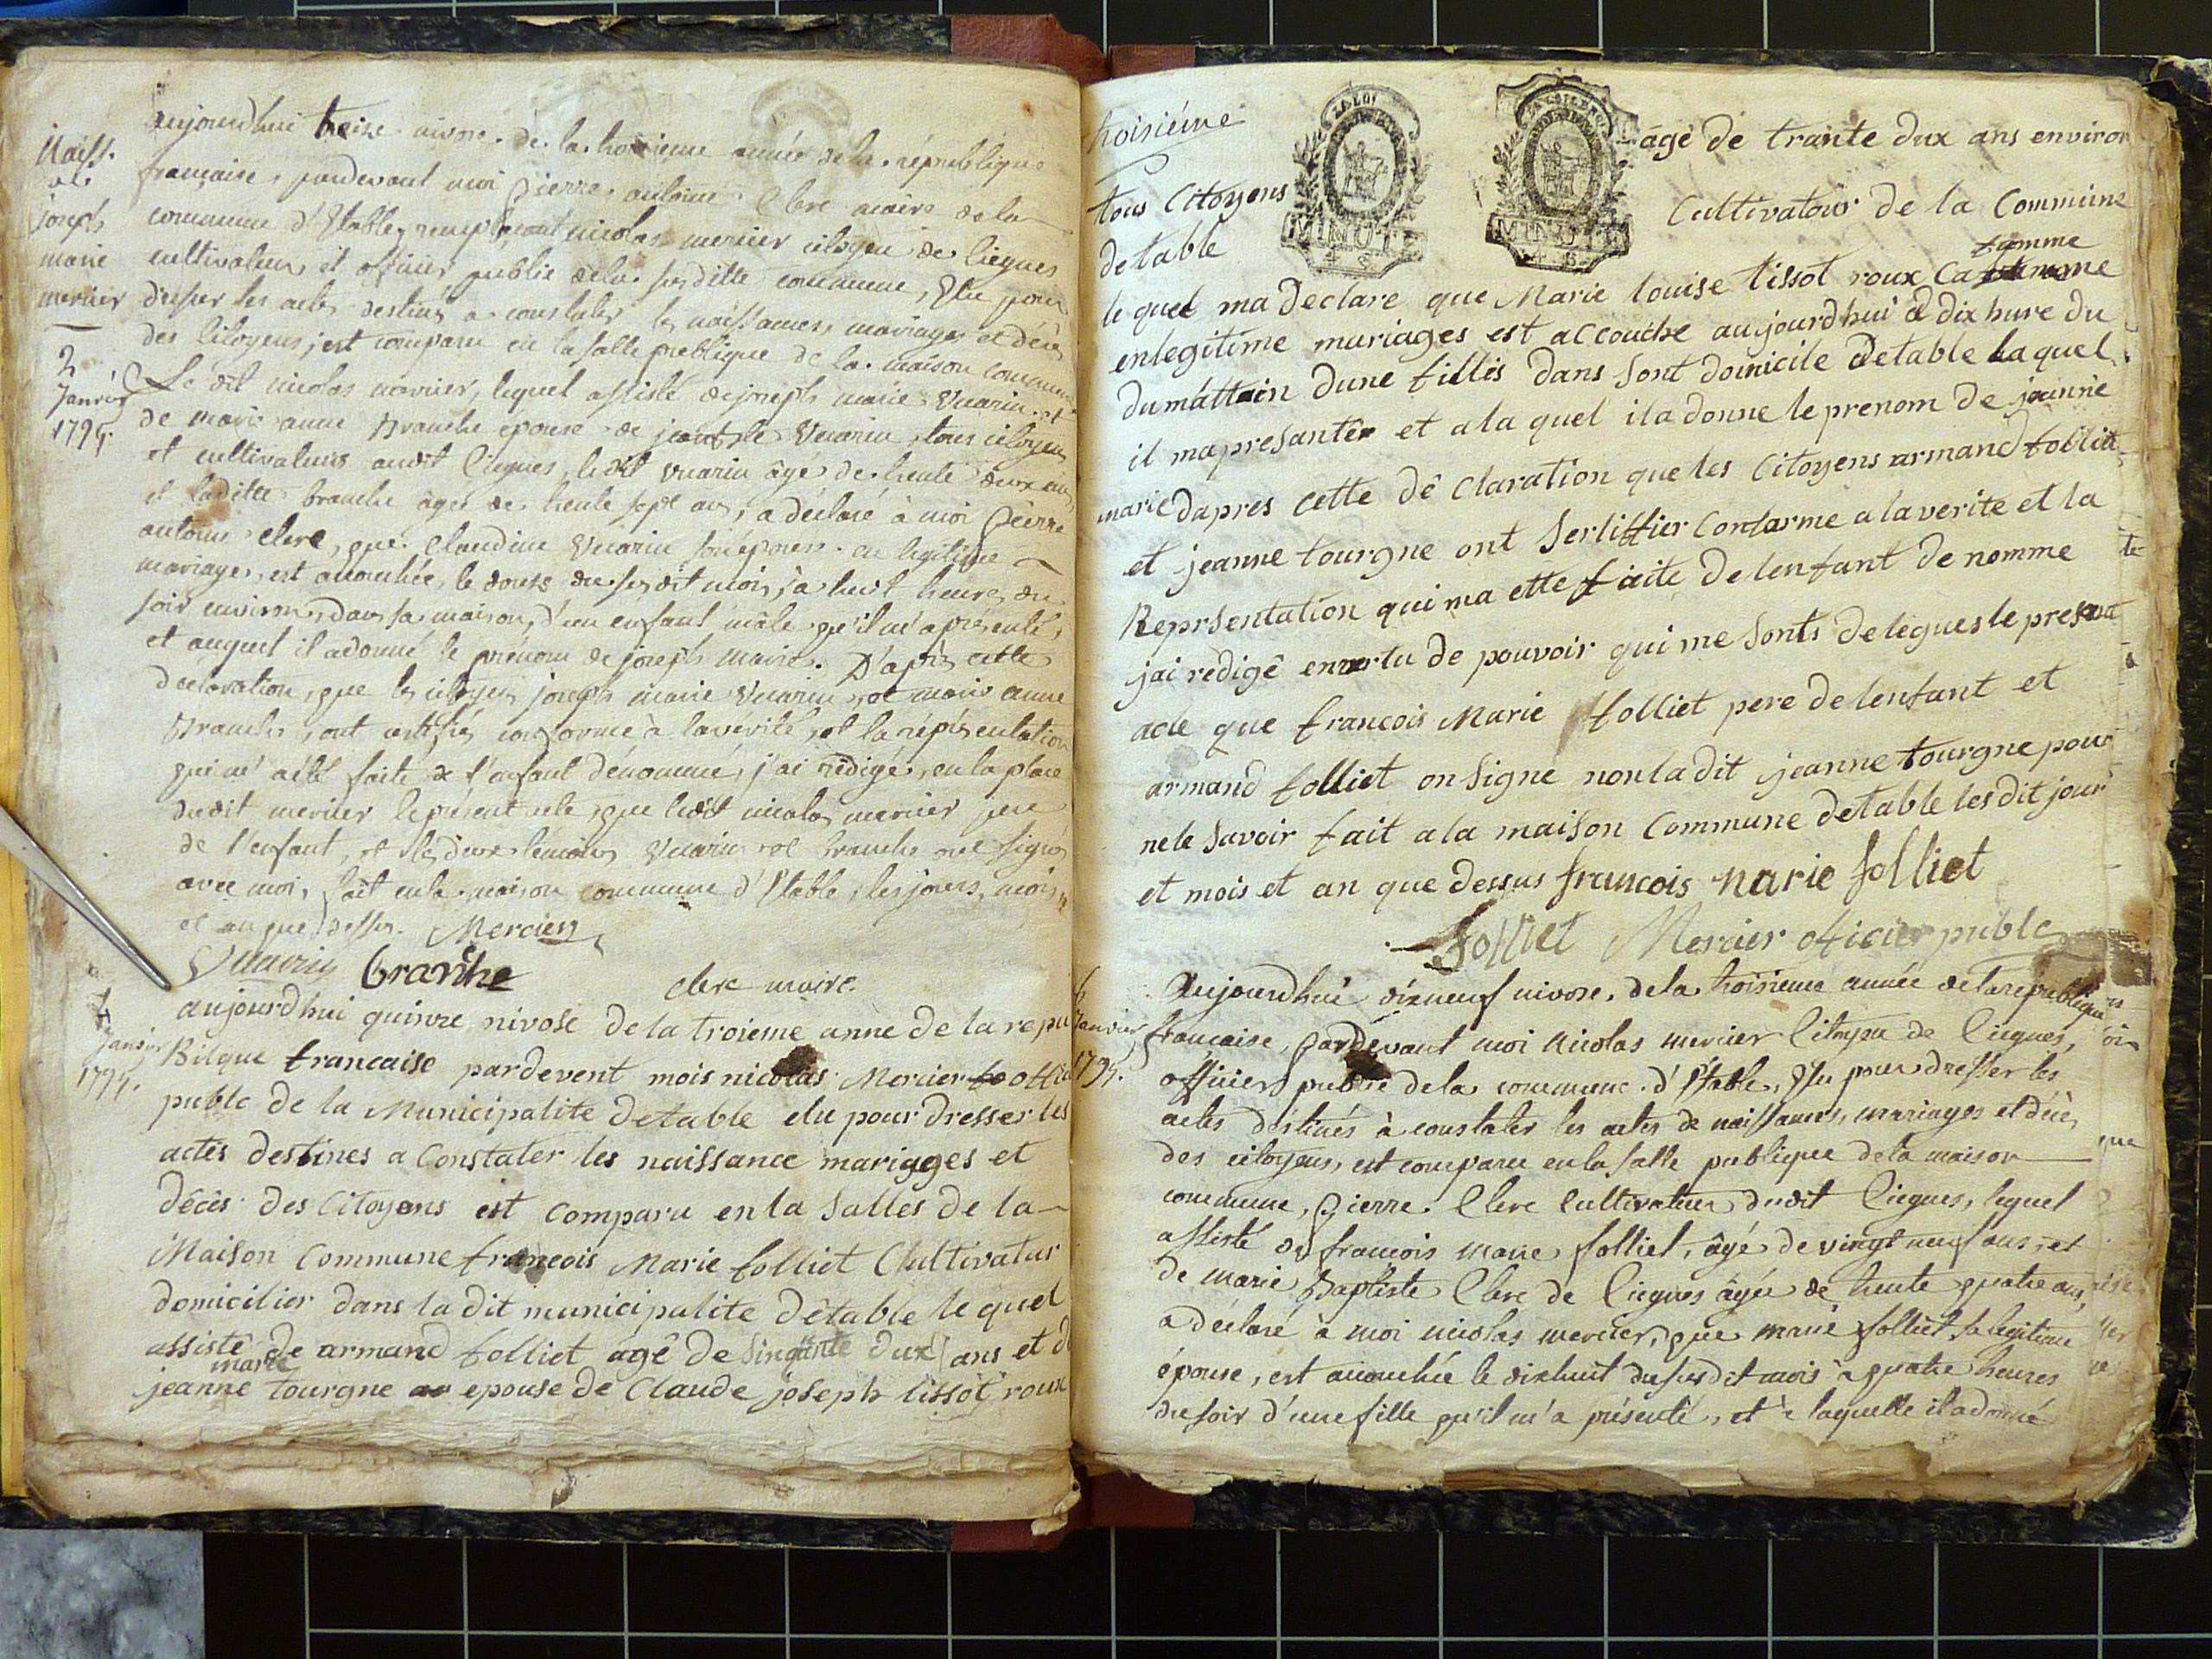 aujourdhui treise nivose de la troisieme année de la république
Naiss.
de
joseph
marie
mercier
française, pardevant moi pierre antoine Clerc maire de la
commune d'Etable, remplaçant nicolas mercier citoyen de Ciegnes
cultivateur et officier public de la susditte commune, Elu pour
dresser les actes destinés a constater les naissances, mariages et décès
des Citoyens, est comparu en la salle publique de la maison commune
2
Janvier
1795.
Le dit nicolas mercier, lequel assisté de joseph marie Vuarin et
de marie anne Branche épouse de Vuarin, tous citoyens
et cultivateurs audit Ciegnes, ledit Vuarin âgé de trente deux ans
et laditte branche âgée de trente sept ans, a déclaré à moi pierre
antoine clerc, que Claudine Vuarin son épouse en légitime
mariage, est accouchée, le douse du susdit mois, à huit heures du
soir environ, dans sa maison, d'un enfant mâle qu'il m'a présenté,
et auquel il a donné le prénom de joseph marie. D'après cette
déclaration, que les citoyens joseph marie Vuarin et marie anne
Branche, ont certifié conforme à la vérité, et la représentation
qui m'a été faite de l'enfant dénommé, j'ai rédigé, en la place
dudit mercier le présent acte, que ledit nicolas mercier père
de l'enfant, et les deux témoins Vuarin et branche ont signé
avec moi, fait en la maison commune d'Etable, les jours, mois
et an que dessus. Mercier
Vuarin Branche clerc maire.
4
Janvier
1795.
aujourdhui quinze nivose de la troieme anne de la repu
Bilque francaise pardevent mois nicolas Mercier offici
publc de la Municipalite detable elu pour dresser les
actes destines a Constater les naissance mariages et
décès des Citoyens est comparu en la Salles de la
Maison Commune francois Marie folliet Cultivatur
domicilier dans la dit municipalite détable le quel
assistê de armand folliet agê de Sinqante dux ans et d
marie
jeanne tourgne epouse de Claude joseph tissot roux
troisiéme
LA LOI
MINUTE
4 S
MINUTE
4 S
agé de trante dux ans environ
tous Citoyens
Cultivatoir de la Commune
detable
famme
le quel ma Declare que Marie louise tissot roux Ca
enlegitime mariages est accouche aujourdhui a dix hure du
dumattin dune fillis dans Sont domicile detable la quel
il mapresanter et ala quel ila donne le prenom de jeanne
marie dapres cette dê claration que les Citoyens armand folliet
et jeanne tourgne ont Sertiffier Confarme a laverite et la
Reprsentation qui ma ette faite Delenfant de nomme
jai redigê envertu de pouvoir qui me Sonts delegues le presant
acte que francois Marie folliet pere delenfant et
armand folliet on Signe non la dit jeanne tourgne pour
nele Savoir fait a la maison Commune detable les dit jour
et mois et an que dessus francois marie folliet
folliet Mercier oficier publc
6
Janvier
1795.
Aujourdhui dixneuf nivose, de la troisieme année de la république
francaise, pardevant moi Nicolas mercier Citoyen de Ciegnes,
officier public de la commune d'Etable, Elu pour dresser les
actes déstinés à constater les actes de naissances, mariages et décès
des citoyens, est comparu en la salle publique de la maison
commune, pierre Clerc Cultivateur dudit Ciegnes, lequel
assisté de francois marie folliet, âgé de vingt neuf ans, et
de marie Baptiste Clerc de Ciegnes âgée de trente quatre ans,
a déclaré à moi nicolas mercier, que marie folliet sa légitime
épouse, est accouchée le dixhuit du susdit mois à quatre heures
du soir d'une fille qu'il m'a présenté, et à laquelle il a donné